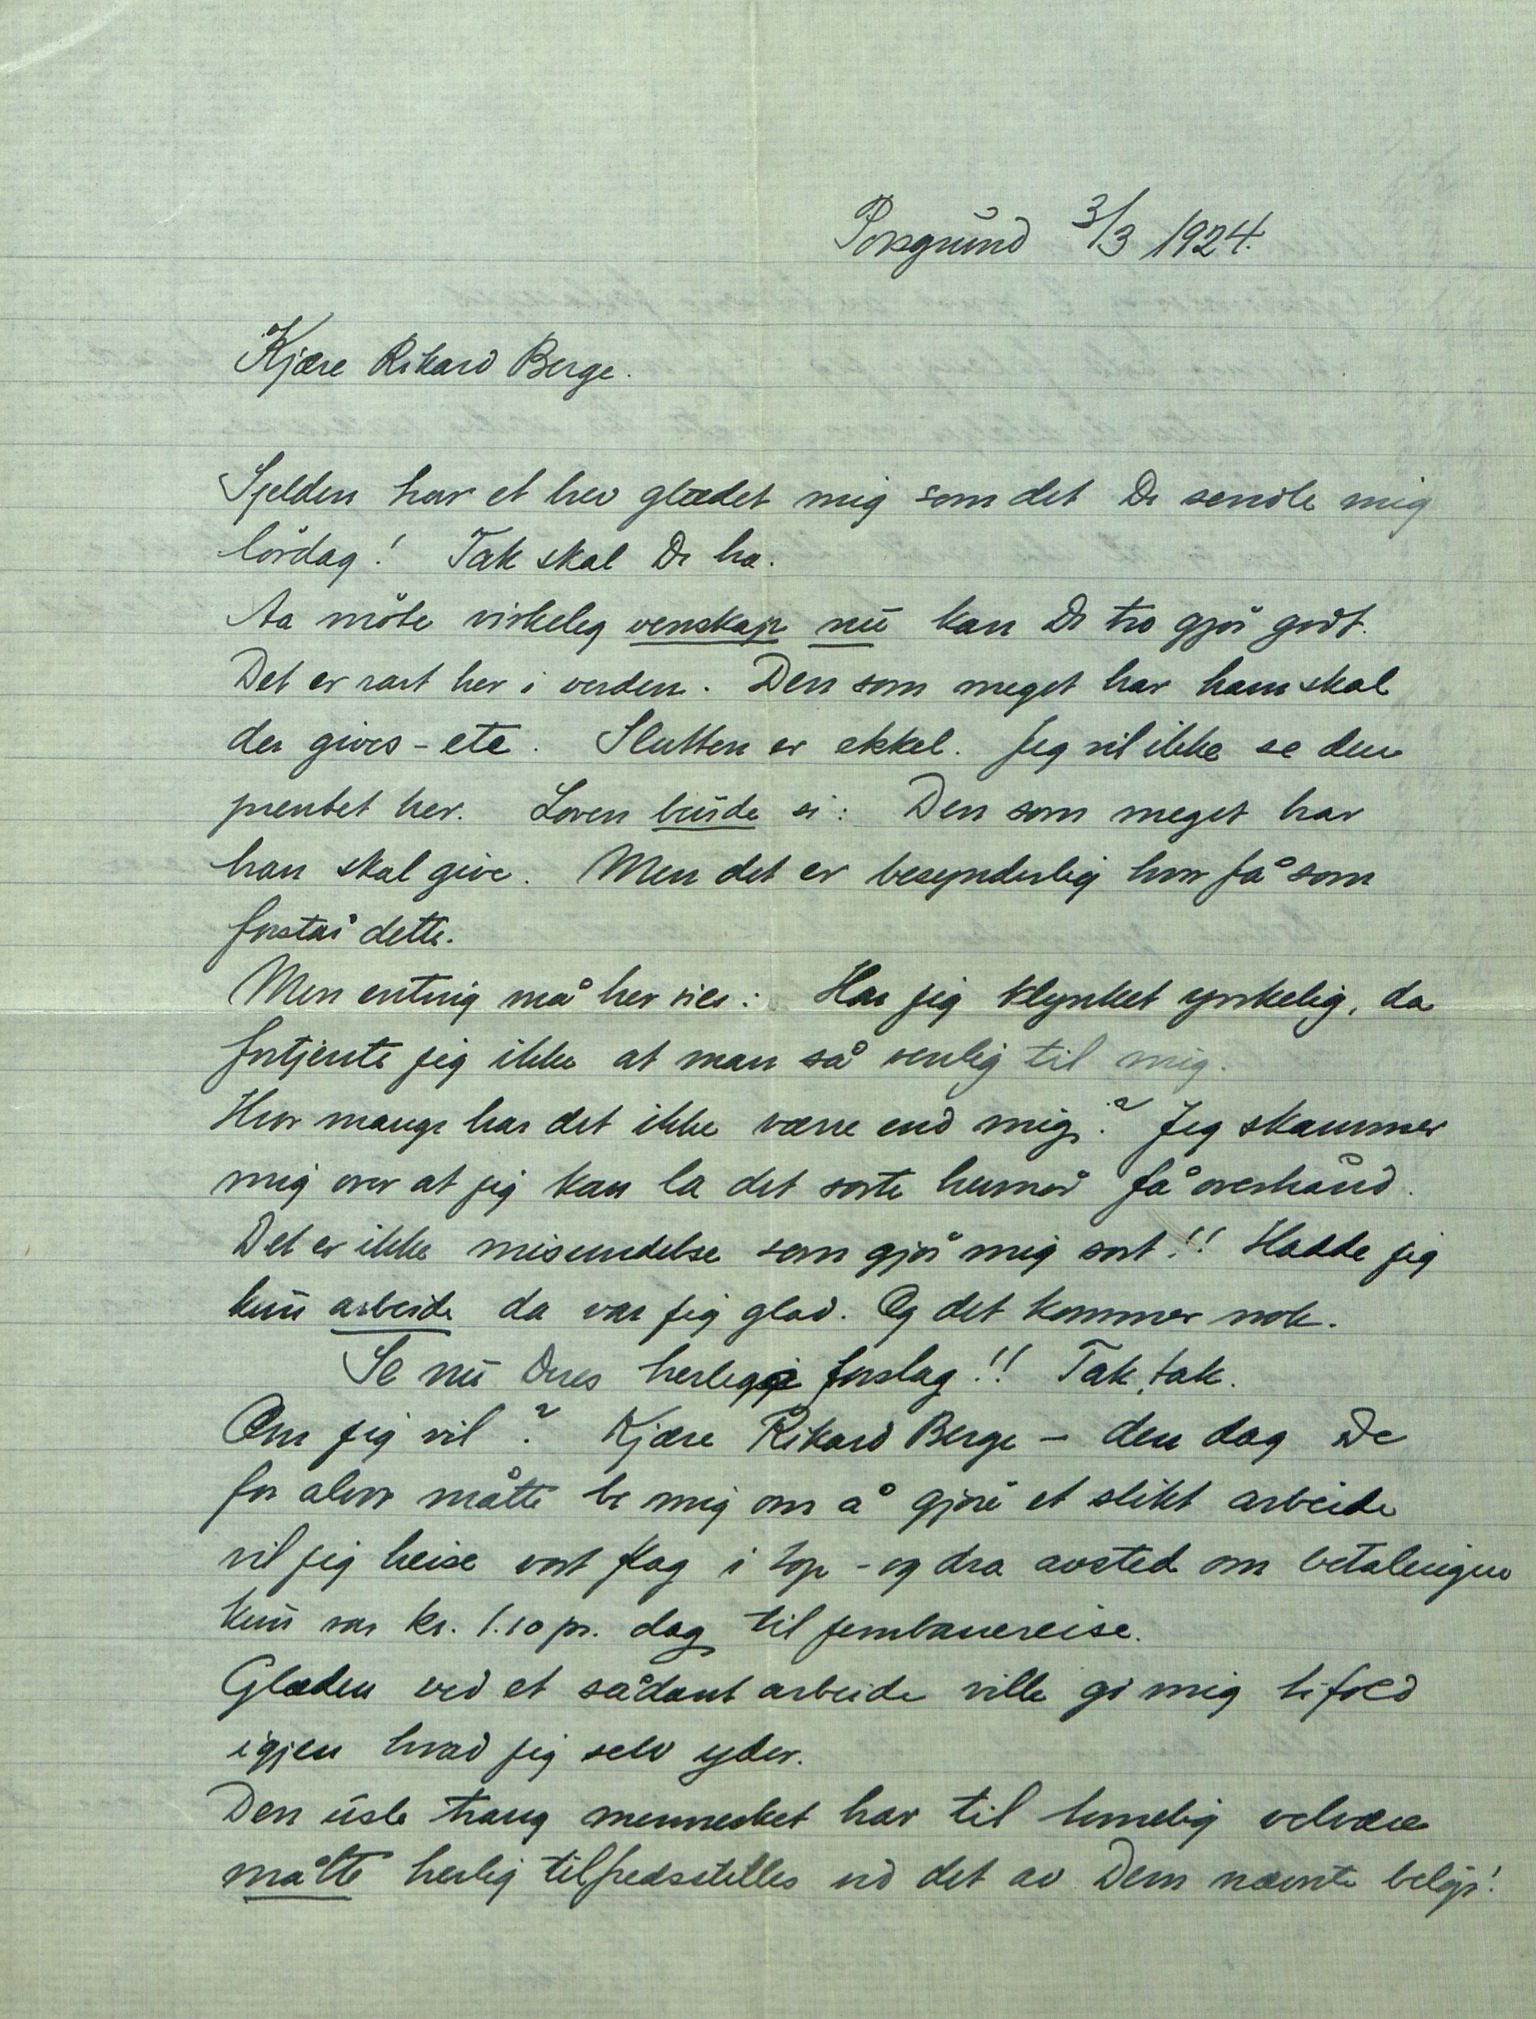 Porsgrund 3/3 1924.
Kjære Rikard Berge.
Sjelden har et brev glædet mig som det De sendte mig
lördag! Tak skal De ha.
Aa möte virkelig venskap nu kan De tro gjör godt.
Det er rart her i verden. Den som meget har ham skal
der gives - etc. Slutten er ekkel. Jeg vil ikke se den
prentet her. Loven burde si: Den som meget har
han skal give. Men det er besynderlig hvor få som
forstår dette.
Men en ting må her sies: Har jeg klynket ynkelig, da
fortjente jeg ikke at man så venlig til mig.
Hvor mange har det ikke værre end mig? Jeg skammer
mig over at jeg kan la det sorte humör få overhånd.
Det er ikke misundelse som gjör mig sort!! Hadde jeg
kun arbeide da var jeg glad. Og det kommer nok.
Se nu Deres herlige forslag!! Tak, tak.
Om jeg vil? Kjære Rikard Berge - den dag De
for alvor måtte be mig om å gjöre et slikt arbeide
vil jeg heise vort flag i top - og dra avsted om betalingen
kun var kr. 1.10 pr. dag til jernbanereise.
Glæden ved et sådant arbeide ville gi mig tifold
igjen hvad jeg selv yder.
Den usle trang mennesket har til timelig velvære
måtte herlig tilfredsstilles ved det av Dem nævnte belöp!